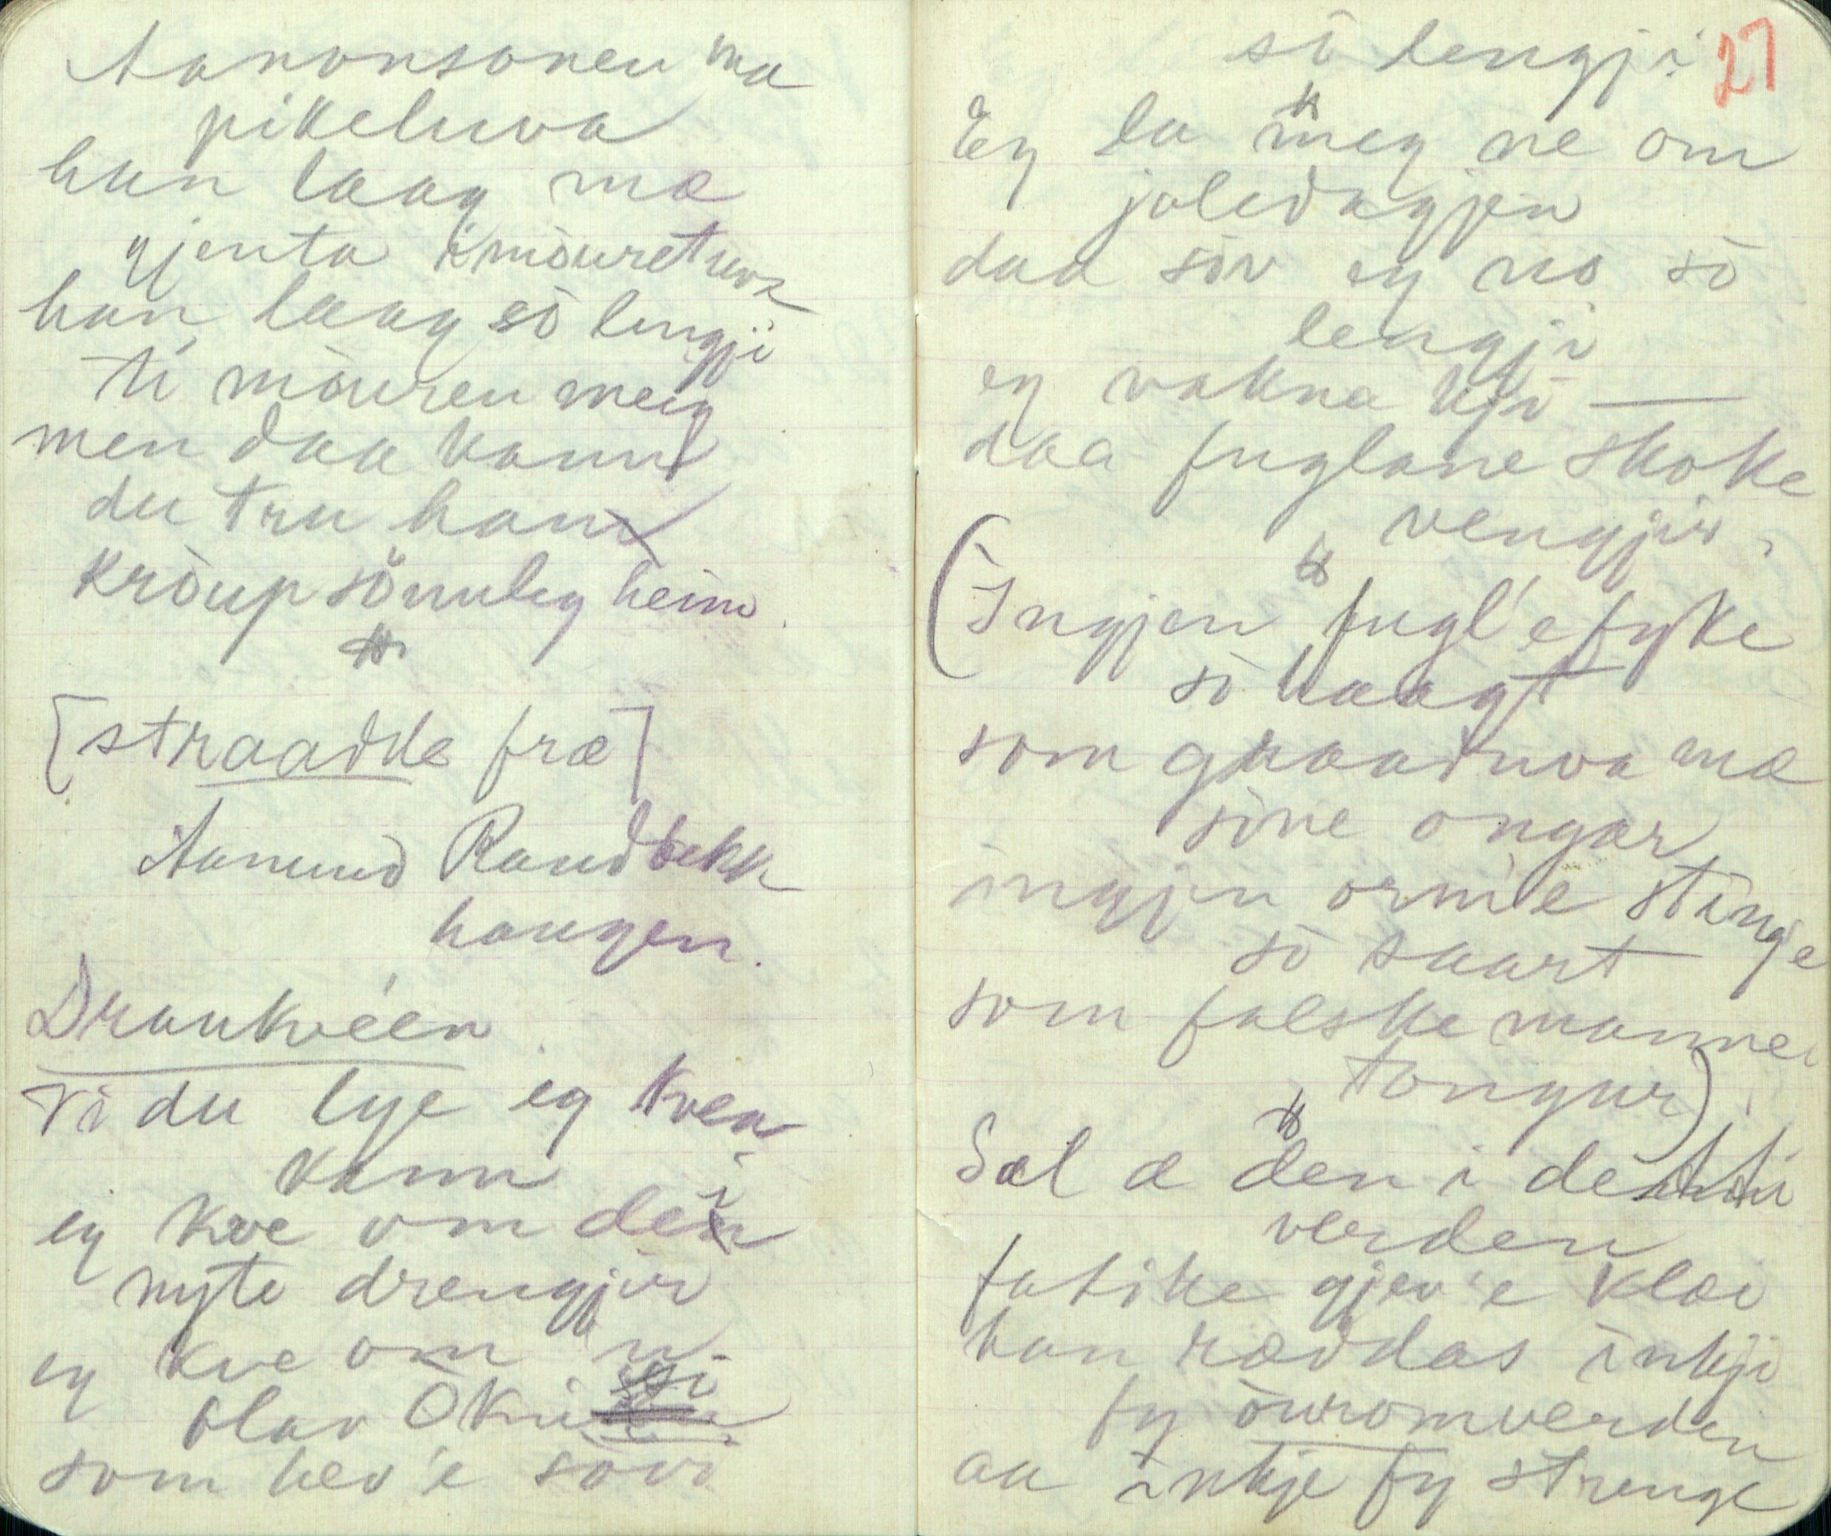 Aanonsonen mæ
pikeluva
han laag mæ
gjenta i mòuretuva
han laag sò lengji
ti mòuren meig
men daa kann
du tru han
kròup sönnleg heim.
[straadde fræ]
Aanund Raudbekk
haugen.
Draukvéen
Vi du lye eg kvea
kann
eg kve om dei
nyte drengjir
eg kve om n
Olav Òkni
som hev'e sòvi
sò lengji
27
Eg la meg ne om
joledagjen
daa sòv eg no sò
lengji
eg vakna kji —
daa fuglane skoke
vengjir.
(Ingjen fugl'e fyke
sò haagt
som graaduva mæ
sine ongar
ingjen orm'e stinge
sò saart
som falske manne
tongur)
Sæl æ den i
verden
fatike gjev'e klæi
han ræddas inkji
fy òuromverden
aa inkje fy strenge